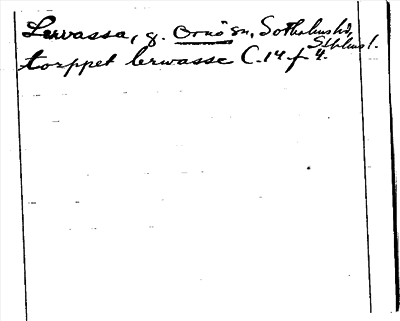 Lervassa, g. Ornö sn, Sotholms hd,
Sthlms l.
torppet lerwasse C. 14 f 4.